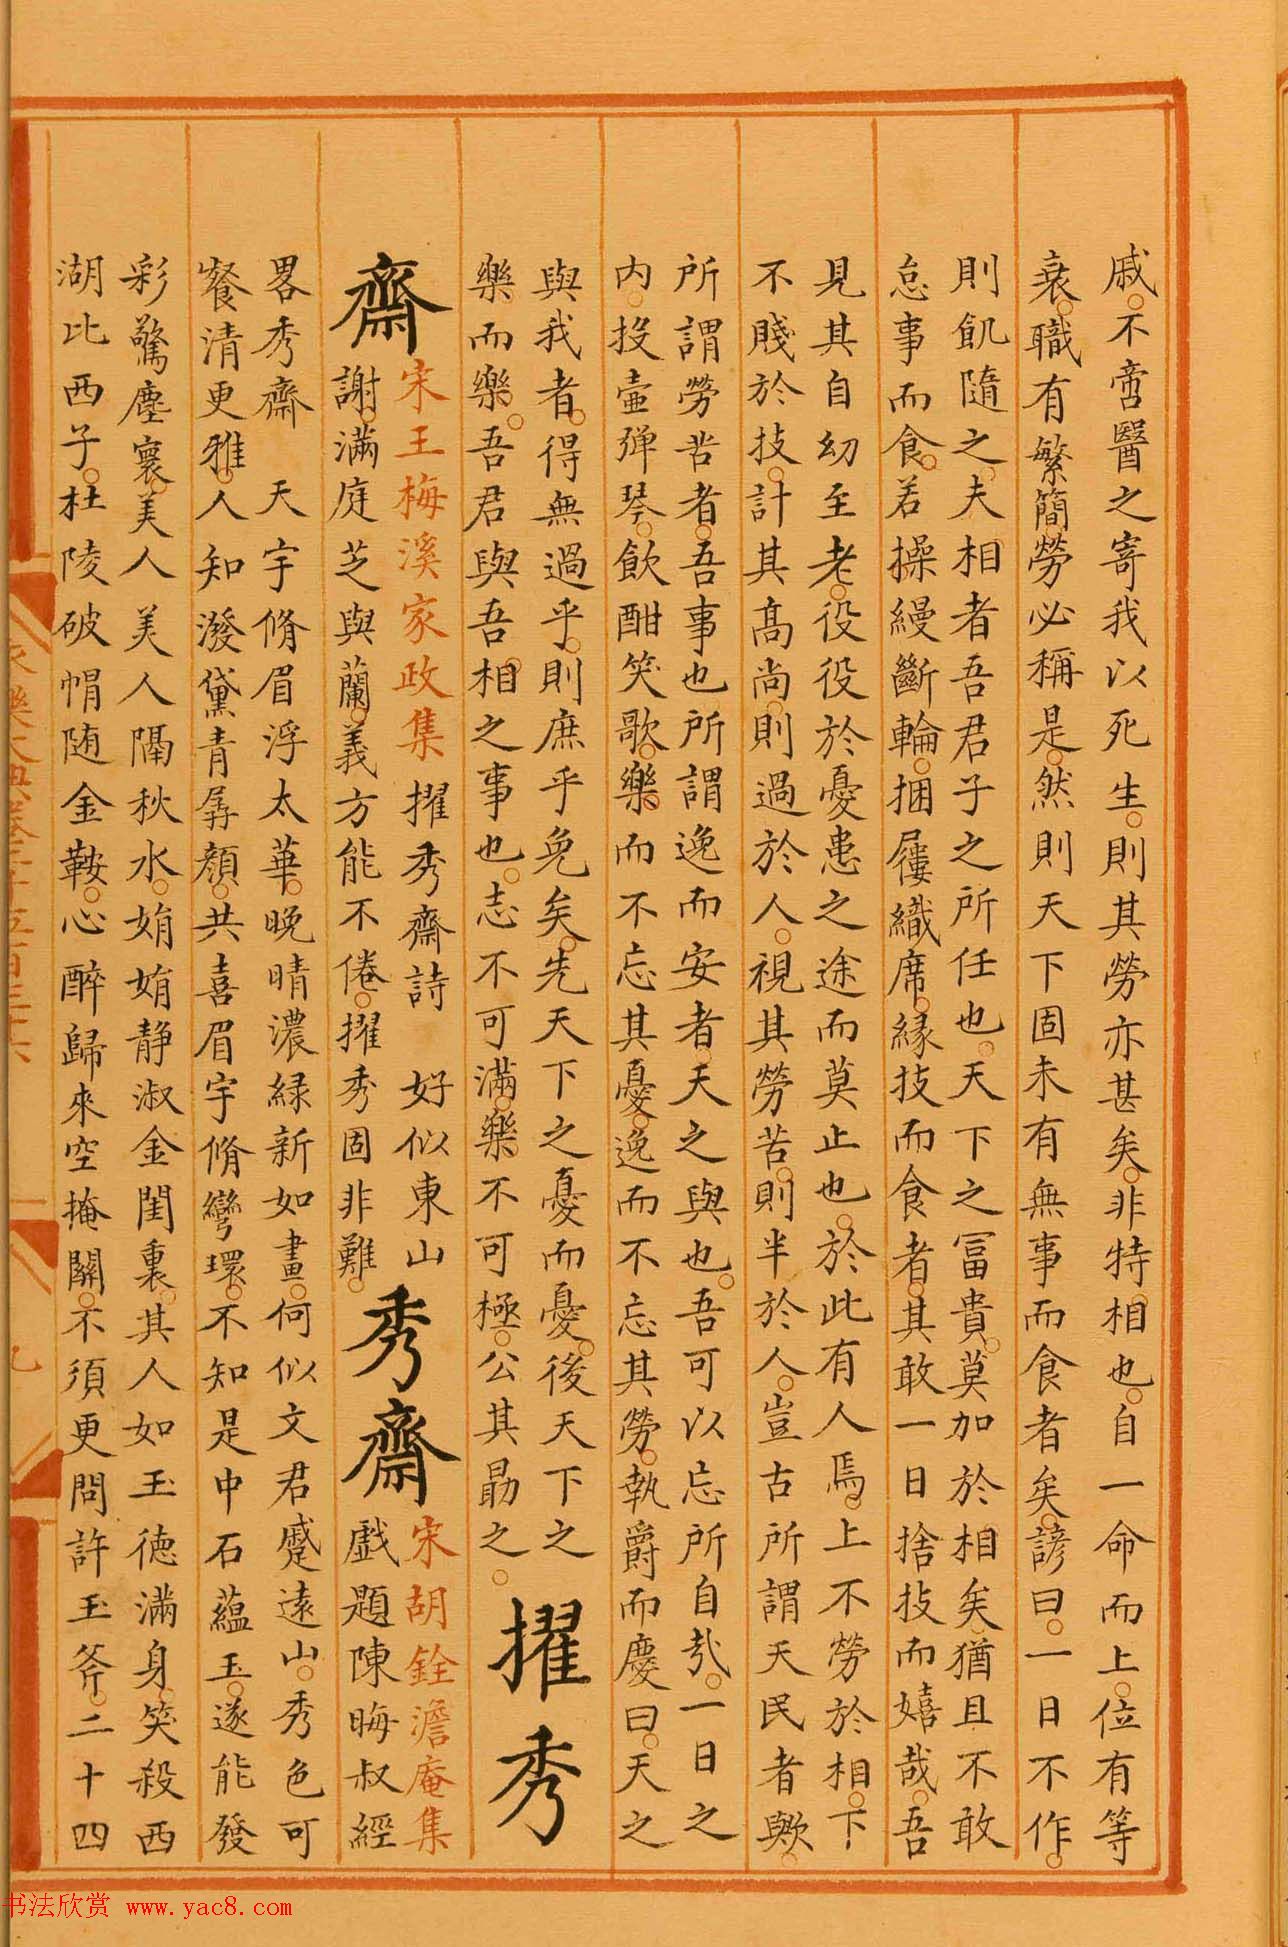 戚不啻醫之寄我以死生則其勞亦甚矣非特相也自一命而上位有等
衰職有繁簡勞必稱是然則天下固未有無事而食者矣諺曰一日不作
則飢隨之夫相者吾君子之所任也天下之冨貴莫加於相矣猶且不敢
怠事而食若操縵斷輪捆屨織席緣技而食者其敢一日捨技而嬉哉吾
見其自幼至老役役於憂患之途而莫止也於此有人焉上不勞於相下
不賤於技計其高尚則過於人視其勞苦則半於人豈古所謂天民者歟
所謂勞苦者吾事也所謂逸而安者天之與也吾可以忘所自㢤一日之
内投壷彈琴飲酣笑歌樂而不忘其憂逸而不忘其勞執爵而慶曰天之
與我者得無過乎則庶乎免矣先天下之憂而憂後天下之
樂而樂吾君與吾相之事也志不可滿樂不可極公其勗之
擢秀
齋
宋王梅溪家政集
擢秀齋詩 好似東山
謝滿庭芝與蘭義方能不倦擢秀固非難
秀齋
宋胡銓澹庵集
戲題陳晦叔經
畧秀齋 天宇脩眉浮太華晚晴濃緑新如畫何似文君蹙遠山秀色可
餐清更雅人知潑黛青孱顔共喜眉宇脩彎環不知是中石蘊玉遂能發
彩驚塵寰美人美人隔秋水娟娟静淑金閨裏其人如玉德滿身笑殺西
湖比西子杜陵破帽随金鞍心醉歸來空掩關不須更問許玉斧二十四
书法欣赏 www.yac8.com